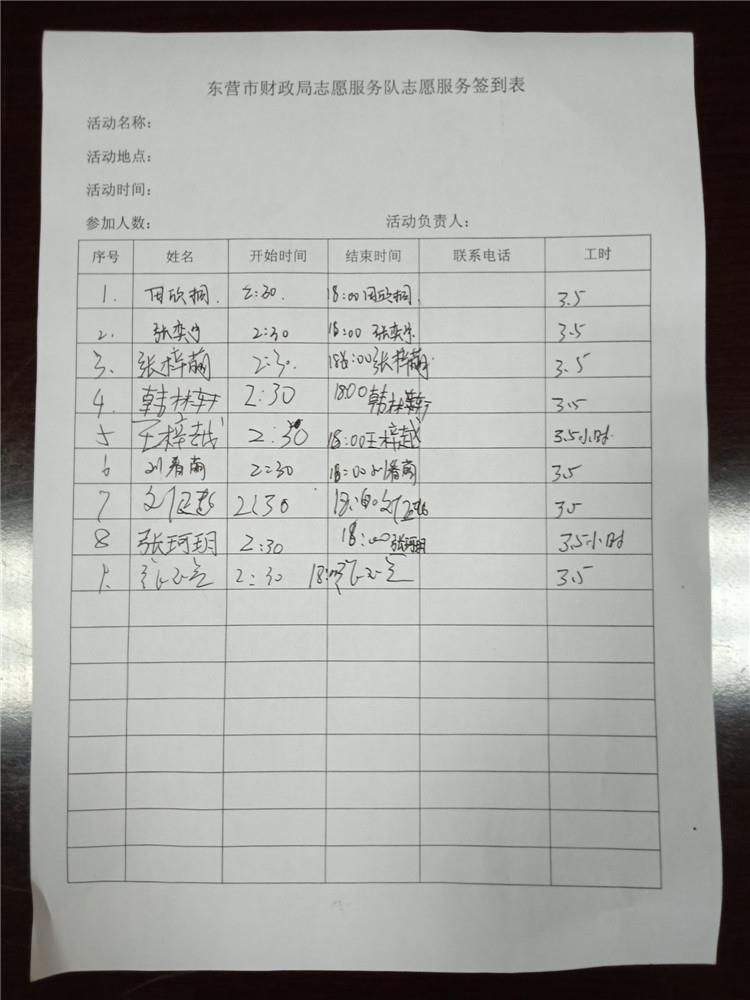 东营市财政局志愿服务队志愿服务签到表
活动名称：
活动地点：
活动时间：
参加人数： 活动负责人：
序号 姓名 开始时间 结束时间 联系电话 工时
1. 田欣桐 2:30. 18:00 田欣桐. 3.5
2. 张奕宁 2:30 18:00 张奕宁 3.5
3. 张梓萌 2:30. 18:00 张梓萌 3.5
4. 韩林轩 2:30 18:00 韩林轩 3.5
5 王梓越 2:30 18:00 王梓越 3.5小时
6 2:30 18:00 3.5
7 2:30 3.5
8 张珂玥 2:30 18:00 张珂玥 3.5小时
2:30 18:00 3.5